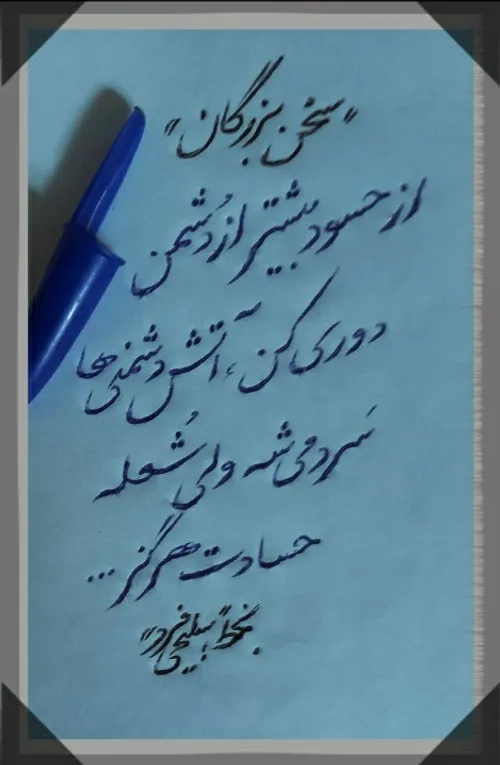 "سخن بزرگان"
از حسود بیشتر از دُشمن
دوری کن، آتش دشمنی‌ها
سَرد می‌شه ولی شُعله
حسادت هرگز...
بخط